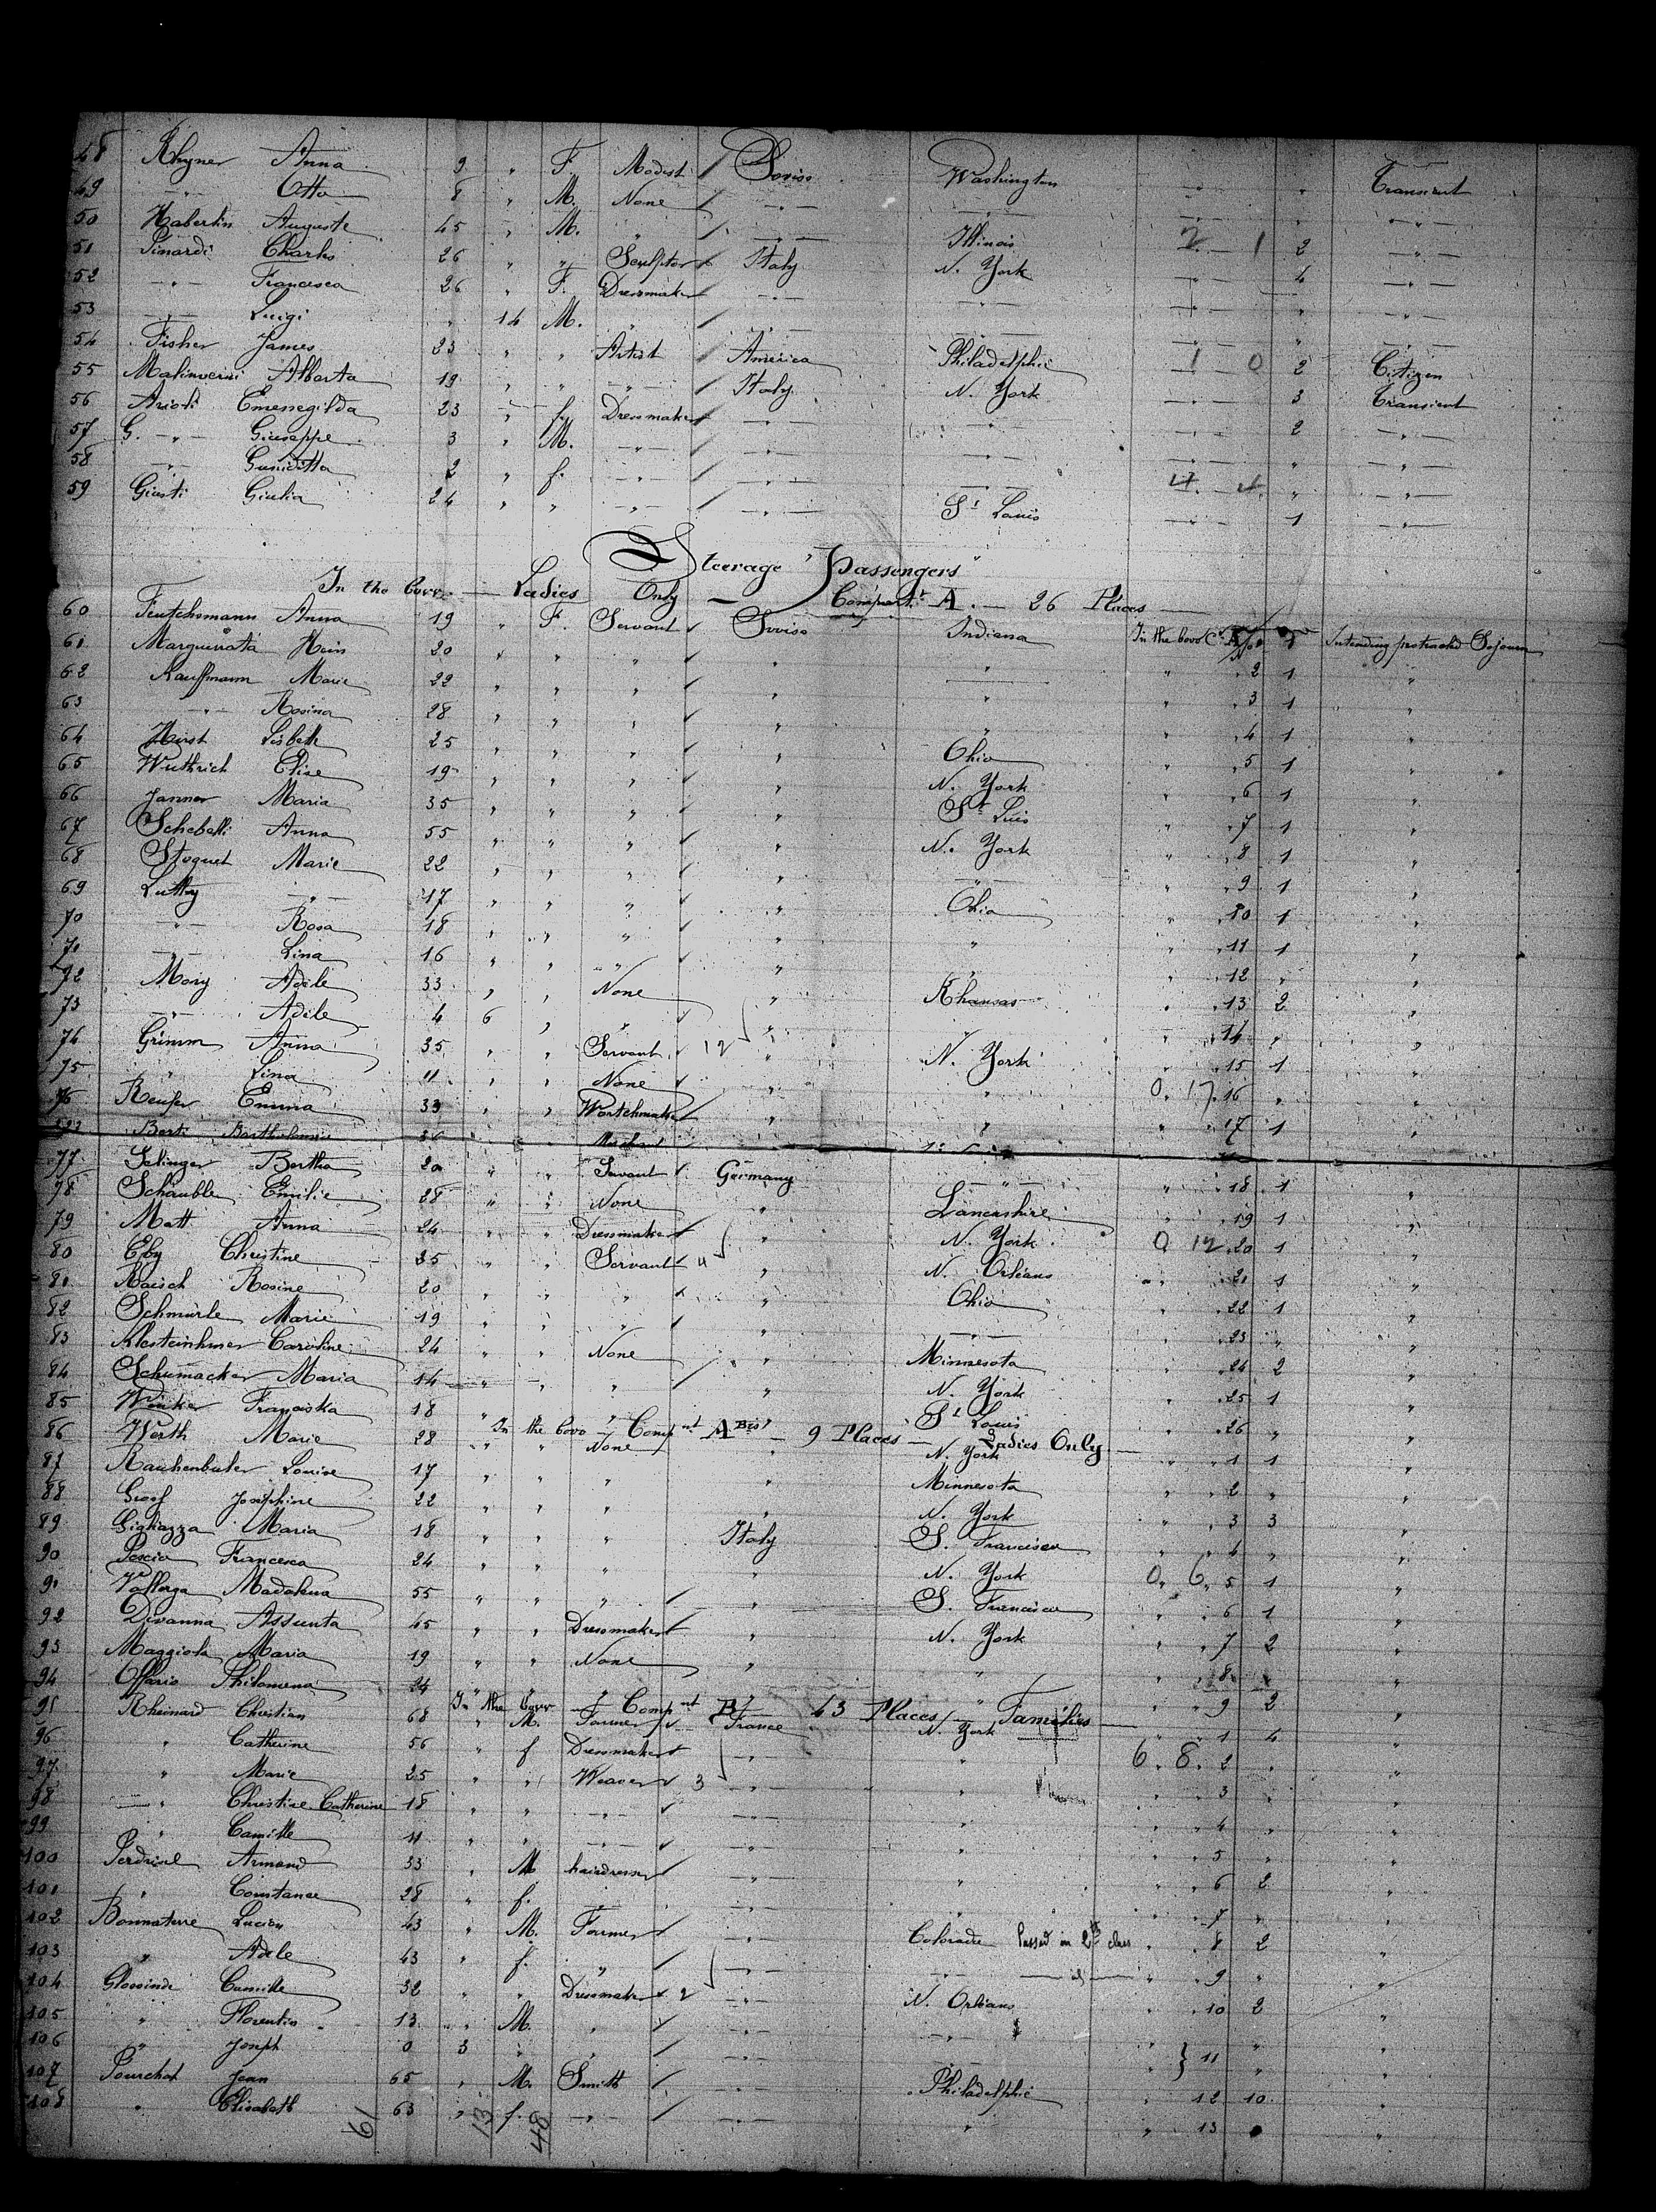 48 Rhyner Anna 9 " F. Modist / Soviso Washington — " Transient
49 —"— Otto 8 " M. None / —"— —"— —"— " —"—
50 Haberlin Auguste 45 " M. " / —"— Illinois 2 1 2 —"—
51 Sinardi Charles 26 " " Sculptor Italy N. York —"— 4 —"—
52 —"— Francesca 26 " F. Dressmaker —"— —"— —"— " —"—
53 —"— Luigi " 14 M. " / —"— —"— —"— " —"—
54 Fisher James 23 " " Artist / America Philadelphie 1 0 2 Citizen
55 Malinverni Alberta 19 " " —"— / Italy N. York —"— 3 Transient
56 Arioti Emenegilda 23 " f. Dressmaker —"— —"— —"— 2 —"—
57 G. —"— Giuseppe 3 " M. —"— / —"— —"— —"— " —"—
58 —"— 2 " f. —"— / —"— —"— 4 4 " —"—
59 Giusti Giulia 24 " " —"— / —"— St Louis —"— 1 —"—
Steerage Passengers
In the Ladies Only — Compart.t A. — 26 Places —
60 Anna 19 " F. Servant Soviso Indiana In the Intending protracted Sojourn
61 Hein 20 " " " " " 2 1 "
62 Kauffmann Marie 22 " " " " " " 3 1 "
63 " Rosina 28 " " " " " " 4 1 "
64 Hirst Lisbeth 25 " " " " Ohio " 5 1 "
65 Wuthrich Elise 19 " " " " N. York " 6 1 "
66 Janner Maria 35 " " " " St Luis " 7 1 "
67 Schebelli Anna 55 " " " " N. York " 8 1 "
68 Stoquet Marie 22 " " " " —"— " 9 1 "
69 Luthy —"— 17 " " " " Ohio " 10 1 "
70 " Rosa 18 " " " " " " 11 1 "
71 —"— Lina 16 " " " " " " 12 " "
72 Mory Adele 33 " " None " Khansas " 13 2 "
73 —"— Adele 4 6 " " " " " 14 " "
74 Grimm Anna 35 " " Servant 12 " N. York " 15 1 "
75 " Lina 11 " " None " " 0. 17. 16 " "
76 Emma 33 " " Wortchmaker " " " 17 1 "
Berti 36
77 Selinger Bertha 20 " " Servant Germany —"— " 18 1 "
78 Schäuble Emilie 28 " " None " Lancashire " 19 1 "
79 Matt Anna 24 " " Dressmaker " N. York 0 12 20 1 "
80 Eby Christine 25 " " Servant 4 " N. Orléans " 21 1 "
81 Raisch Rosine 20 " " " " Ohio " 22 1 "
82 Schmürle Marie 19 " " " " —"— " 23 " "
83 Klesteinhmer Caroline 24 " " None " Minnesota " 24 2 "
84 Schumacker Maria 14 " " " / " N. York " 25 1 "
85 Winker Franciska 18 " " " " St Louis " 26 " "
In the Comp.nt A Bis — 9 Places — Ladies Only —
86 Werth Marie 28 " " None " N. York " 1 1 "
87 Rauhenbuler Louise 17 " " " " Minnesota " 2 " "
88 Josephine 22 " " " " N. York " 3 3 "
89 Maria 18 " " " Italy S. Francisco " 4 " "
90 Pescia Francesca 24 " " " " N. York 0. 6. 5 1 "
91 Vallerga Madalena 55 " " " / " S. Francisco " 6 1 "
92 Divanna Assunta 45 " " Dressmaker " N. York " 7 2 "
93 Maggiola Maria 19 " " None " " " 8 "
94 Philomena 24 " " " " " " 9 2 "
In the Comp.nt B — 43 Places — Families —
95 Rheinard Christian 68 " M. Farmer France N. York " 1 4 "
96 " Catherine 56 " f Dressmaker —"— " 6. 8. 2 " "
97 " Marie 25 " " Weaver 3 —"— " " 3 " "
98 —"— Christine Catherine 18 " " —"— —"— " " 4 " "
99 " Camille 11 " " —"— —"— " " 5 " "
100 Perdrisel Armand 33 " M hairdresser —"— " " 6 2 "
101 " Constance 28 " f. " / —"— " " 7 " "
102 Bonnaterre Lucien 43 " M. Farmer —"— Colorado Passed in 2d class " 8 2 "
103 " Adele 43 " f. " / —"— —"— — id — " 9 " "
104 Camille 32 " " Dressmaker 2 —"— N. Orléans " 10 2 "
105 " Florentin 13 " M. " —"— —"— " "
106 " Joseph 0 3 " " / —"— —"— " } 11 " "
107 Pourchot Jean 65 " M. Smith / —"— Philadelphie 12 10 "
108 " Elisabeth 63 " f. —"— / —"— " " 13 "
61 13 48